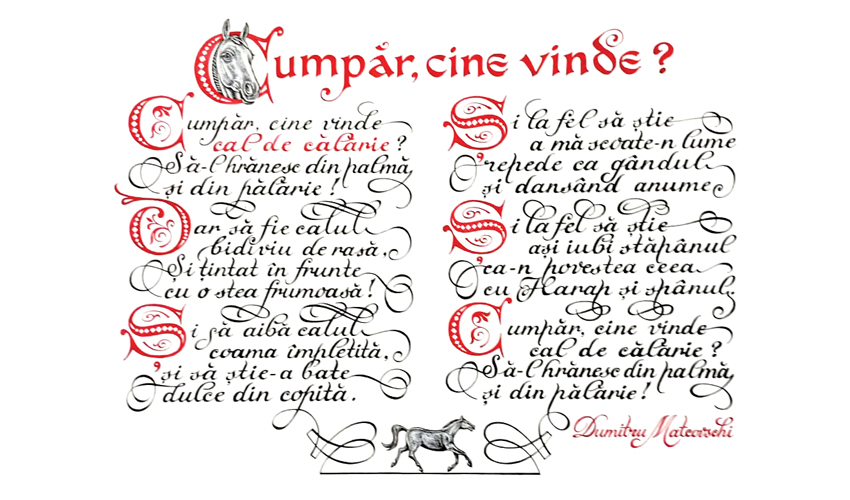 Cumpăr, cine vinde?
Cumpăr, cine vinde
cal de călărie?
Să-l hrănesc din palmă
și din pălărie!
Dar să fie calul
bidiviu de rasă,
Și țintat în frunte
cu o stea frumoasă!
Și să aibă calul
coama împletită,
'și să știe-a bate
dulce din copită.
Și la fel să știe
a mă scoate-n lume
'repede ca gândul
și dansând anume
Și la fel să știe
ași iubi stăpânul
'ca-n povestea ceea
cu Harap și spânul.
Cumpăr, cine vinde
cal de călărie?
Să-l hrănesc din palmă
și din pălărie!
Dumitru Matcovschi